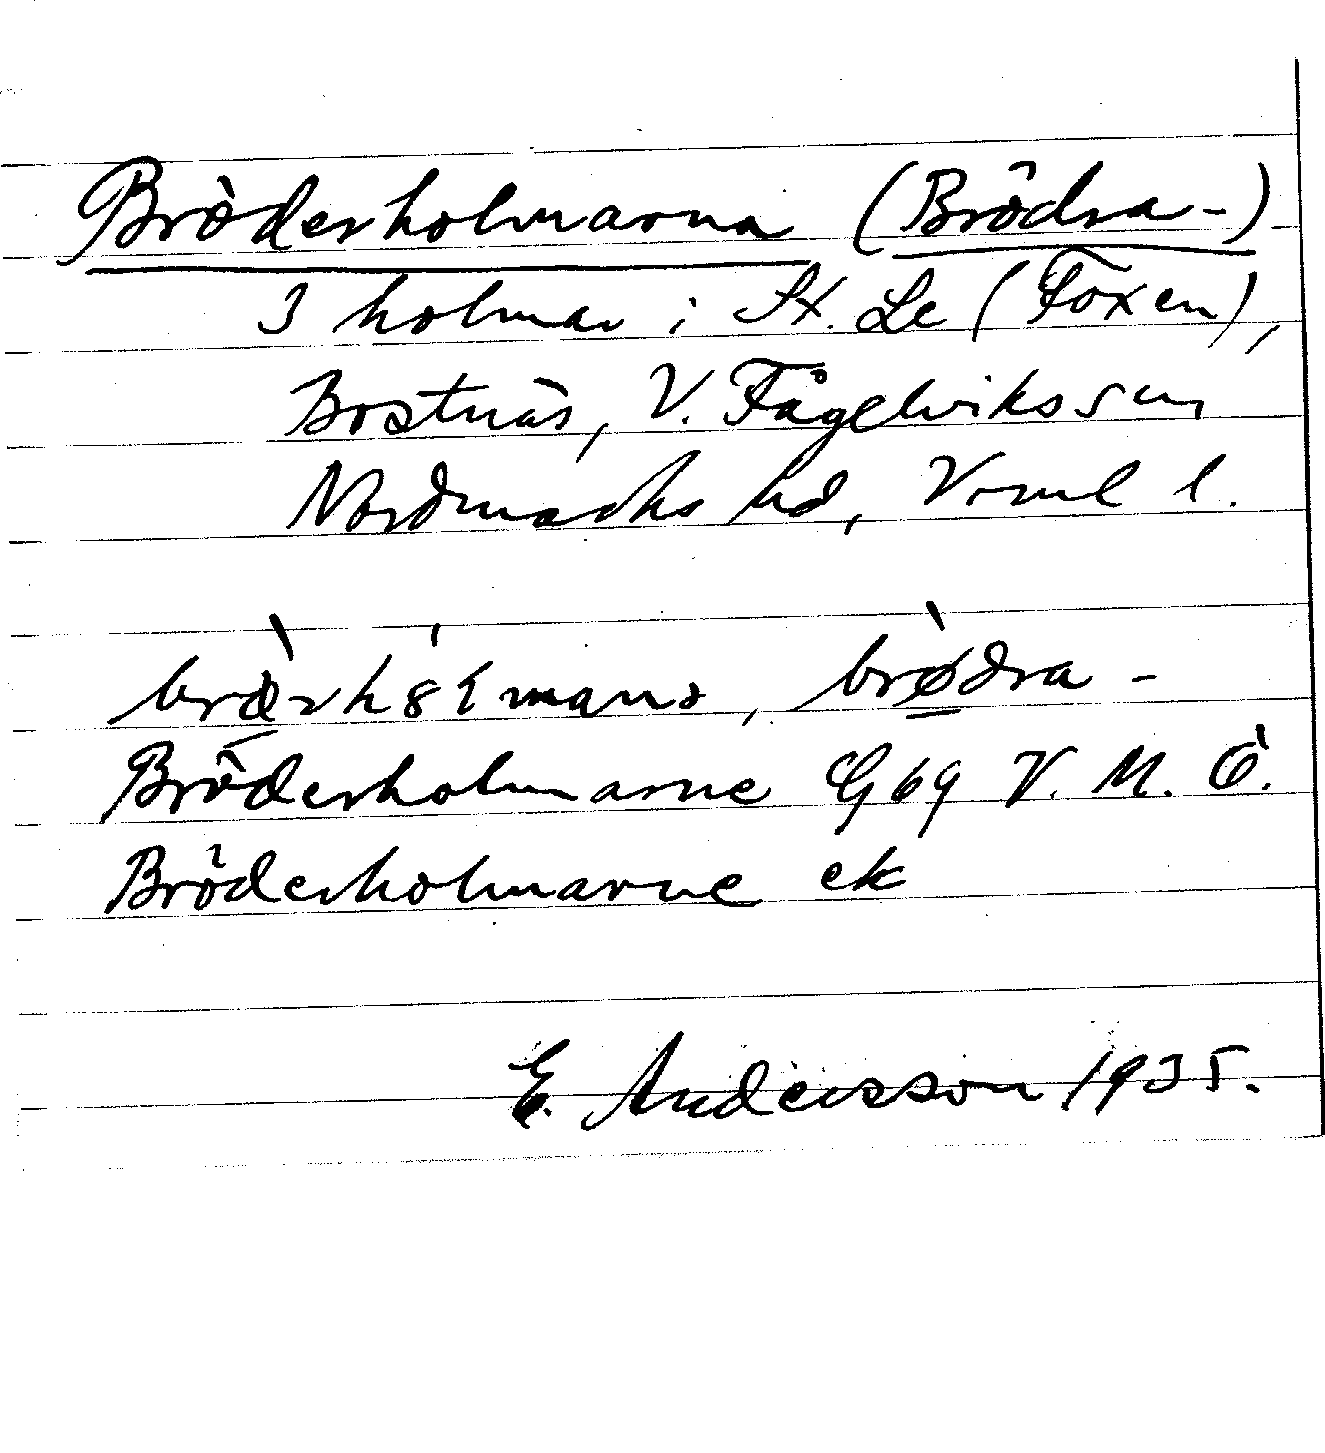 Bröderholmarna (Brödra-)
3 holmar i St. Le (Foxen),
Bostnäs, V. Fågelvikssn
Nordmarks hd, Vrml l.
brødra-
Bröderholmarne G 69 V. M. Ö.
Bröderholmarne ek
E. Andersson 1935.